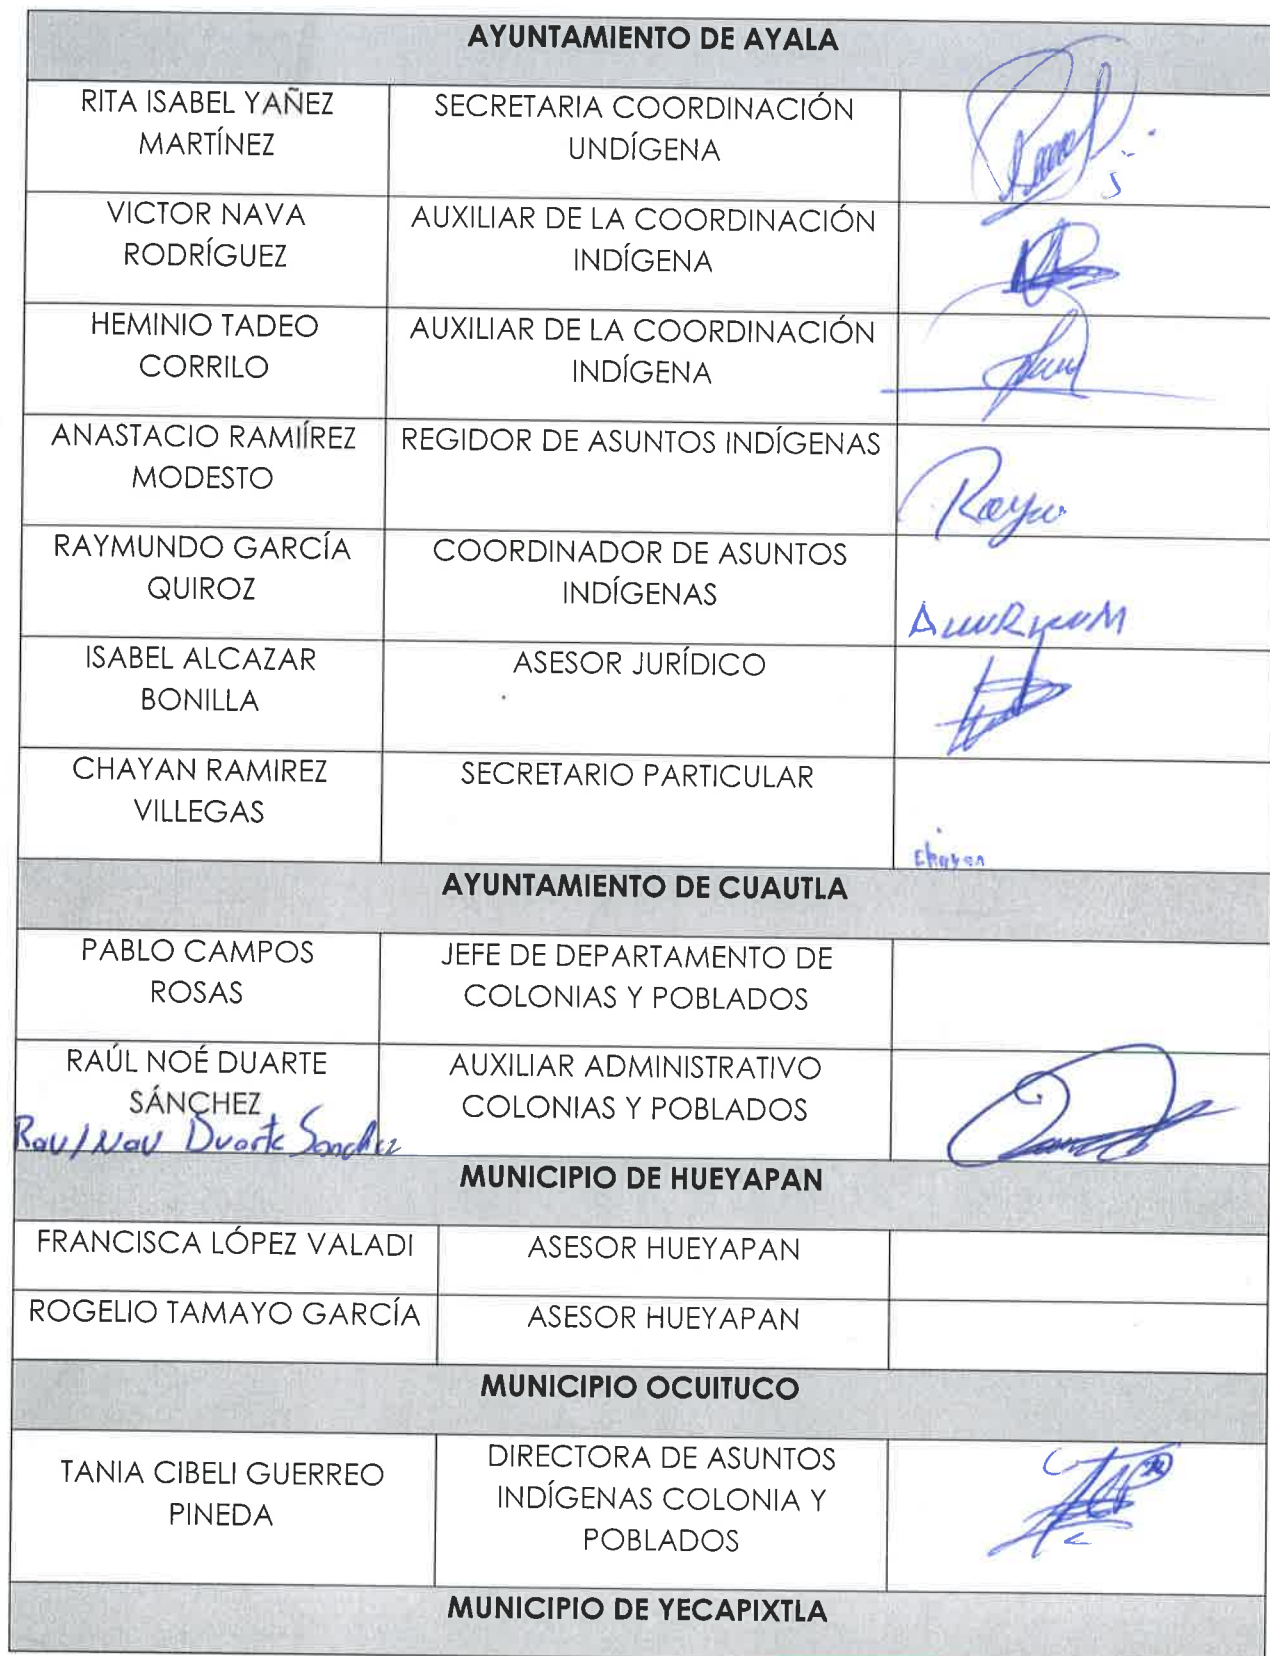 AYUNTAMIENTO DE AYALA
RITA ISABEL YAÑEZ
MARTÍNEZ
SECRETARIA COORDINACIÓN
UNDÍGENA
VICTOR NAVA
RODRÍGUEZ
AUXILIAR DE LA COORDINACIÓN
INDÍGENA
HEMINIO TADEO
CORRILO
AUXILIAR DE LA COORDINACIÓN
INDÍGENA
ANASTACIO RAMIÍREZ
MODESTO
REGIDOR DE ASUNTOS INDÍGENAS
RAYMUNDO GARCÍA
QUIROZ
COORDINADOR DE ASUNTOS
INDÍGENAS
ISABEL ALCAZAR
BONILLA
ASESOR JURÍDICO
CHAYAN RAMIREZ
VILLEGAS
SECRETARIO PARTICULAR
Chayan
AYUNTAMIENTO DE CUAUTLA
PABLO CAMPOS
ROSAS
JEFE DE DEPARTAMENTO DE
COLONIAS Y POBLADOS
RAÚL NOÉ DUARTE
SÁNCHEZ
Duarte Sanchez
AUXILIAR ADMINISTRATIVO
COLONIAS Y POBLADOS
MUNICIPIO DE HUEYAPAN
FRANCISCA LÓPEZ VALADI
ASESOR HUEYAPAN
ROGELIO TAMAYO GARCÍA
ASESOR HUEYAPAN
MUNICIPIO OCUITUCO
TANIA CIBELI GUERREO
PINEDA
DIRECTORA DE ASUNTOS
INDÍGENAS COLONIA Y
POBLADOS
MUNICIPIO DE YECAPIXTLA